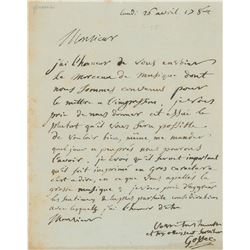 Lundi 26 avril 1784
Monsieur
j'ai l'honneur de vous envoier
le morceau de musique dont
nous sommes convenus pour
le mettre a l'impression, je vous
prie de nous donner cet essai le
plutot qu'il vous sera possible.
de vouloir bien me mander quel
jour a peu près nous pourrons
l'avoir. je crois qu'il seroit important
qu'il fut imprimé en gros caractere
c'est a dire, en ce que vous appellez la
grosse musique; je vous prie d'agréer
les sentimens de la plus parfaite consideration
avec lesquels j'ai l'honneur d'etre
Monsieur
Votre tres humble
et tres obeissant serviteur
Gossec